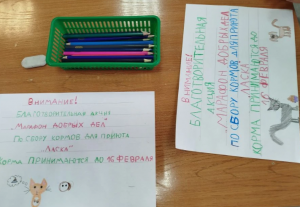 ВНИМАНИЕ!
БЛАГОТВОРИТЕЛЬНАЯ АКЦИЯ
„МАРАФОН ДОБРЫХ ДЕЛ"
ПО СБОРУ КОРМОВ ДЛЯ ПРИЮТА
„ЛАСКА"
КОРМА ПРИНИМАЮТСЯ ДО 16 ФЕВРАЛЯ
ВНИМАНИЕ!
БЛАГОТВОРИТЕЛЬНАЯ
АКЦИЯ
МАРАФОН ДОБРЫХ ДЕЛ
ПО СБОРУ КОРМОВ ДЛЯ ПРИЮТА
ЛАСКА
КОРМА ПРИНИМАЮТСЯ ДО
16 ФЕВРАЛЯ